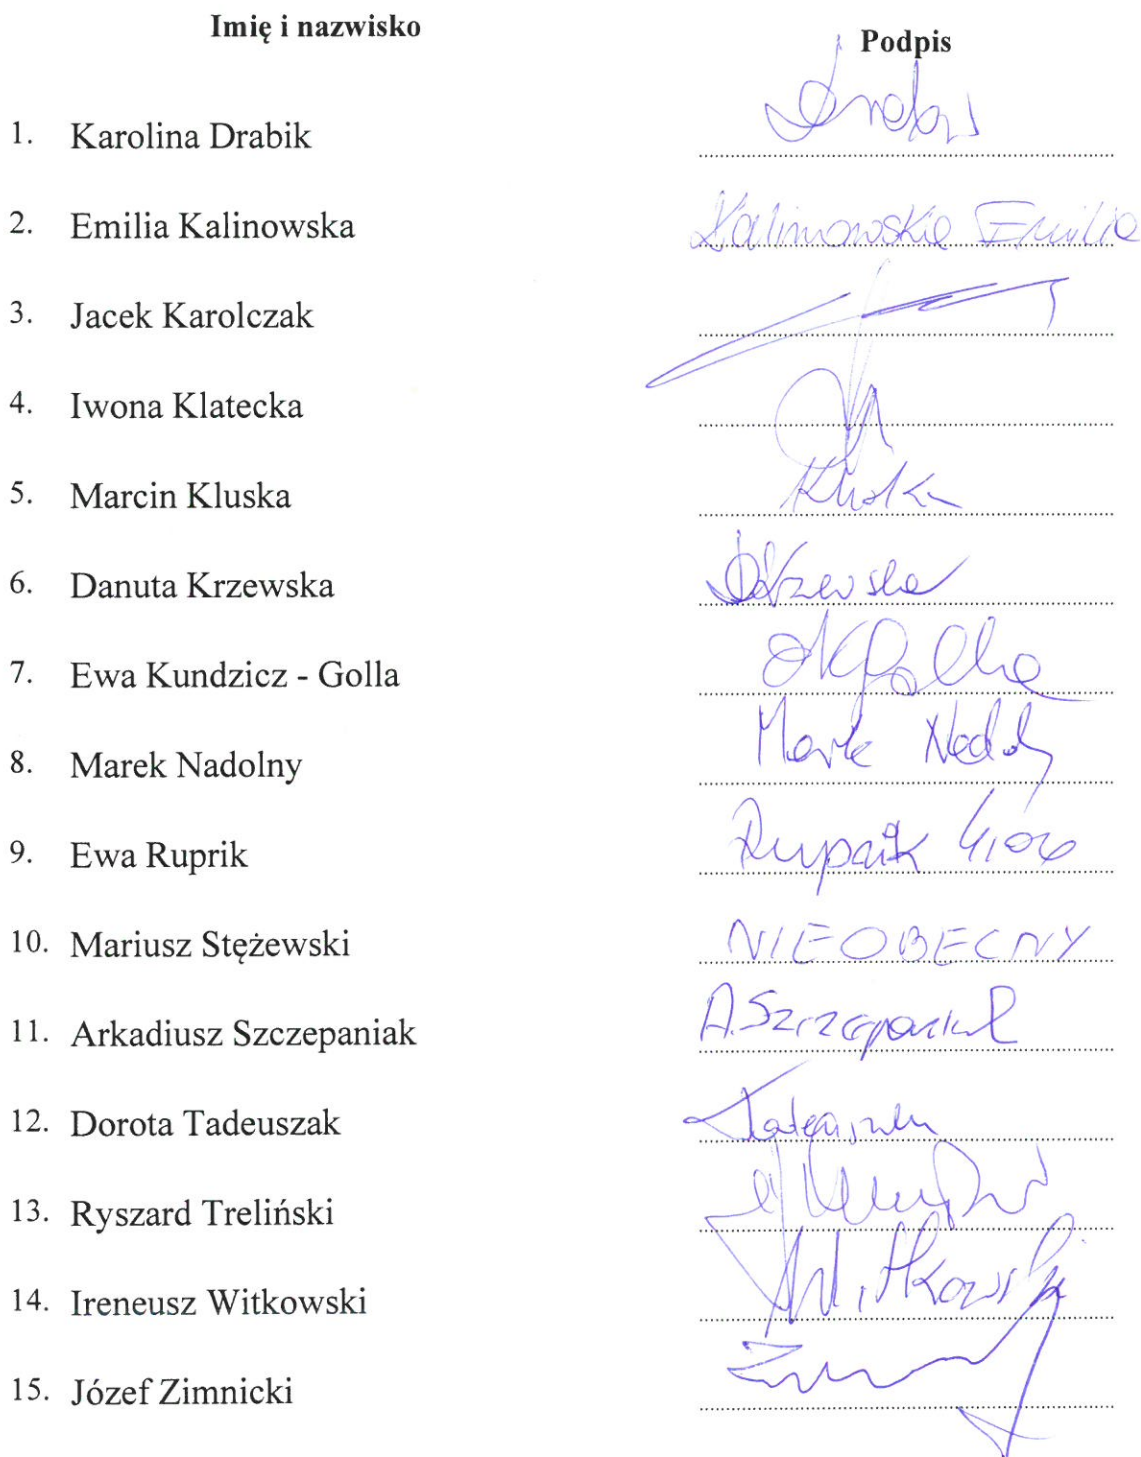 Imię i nazwisko Podpis
1. Karolina Drabik
2. Emilia Kalinowska Kalinowska Emilia
3. Jacek Karolczak
4. Iwona Klatecka
5. Marcin Kluska Kluska
6. Danuta Krzewska DKrzewska
7. Ewa Kundzicz - Golla
8. Marek Nadolny Marek Nadolny
9. Ewa Ruprik
10. Mariusz Stężewski NIEOBECNY
11. Arkadiusz Szczepaniak A. Szczepaniak
12. Dorota Tadeuszak
13. Ryszard Treliński
14. Ireneusz Witkowski Witkowski
15. Józef Zimnicki